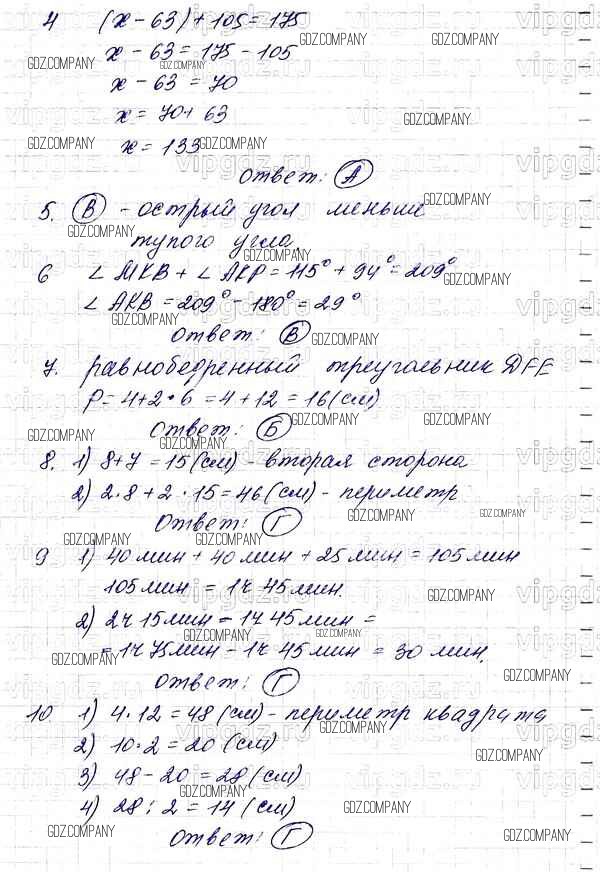 4 (x - 63) + 105 = 175
x - 63 = 175 - 105
x - 63 = 70
x = 70 + 63
x = 133
ответ: А
5. В - острый угол меньше
тупого угла.
6 ∠ МКВ + ∠ АКР = 115° + 94° = 209°
∠ АКВ = 209° - 180° = 29°
ответ: В
7. равнобедренный треугольник DFE
P = 4+2·6 = 4 + 12 = 16 (см)
Ответ: Б
8. 1) 8+7 = 15 (см) - вторая сторона
2) 2·8 + 2·15 = 46 (см) - периметр
Ответ: Г
9 1) 40 мин + 40 мин + 25 мин = 105 мин
105 мин = 1ч 45 мин.
2) 2ч 15 мин - 1ч 45 мин =
= 1ч 75 мин - 1ч 45 мин = 30 мин.
ответ: Г
10 1) 4·12 = 48 (см) - периметр квадрата
2) 10·2 = 20 (см)
3) 48 - 20 = 28 (см)
4) 28 : 2 = 14 (см)
ответ: Г